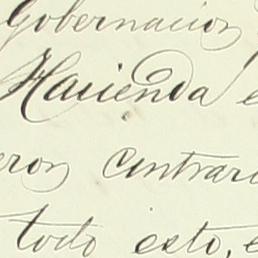 Gobernacion
Hacienda e
eron contrar
todo esto, e